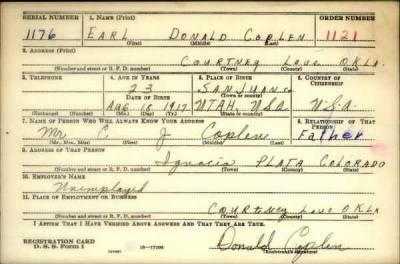 SERIAL NUMBER 1. NAME (Print) ORDER NUMBER
1176 EARL DONALD COPLEN 1121
(First) (Middle) (Last)
2. ADDRESS (Print)
COURTNEY LOVE OKLA.
(Number and street or R. F. D. number) (Town) (County) (State)
3. TELEPHONE 4. AGE IN YEARS 5. PLACE OF BIRTH 6. COUNTRY OF CITIZENSHIP
23 SAN JUAN Co
DATE OF BIRTH (Town or county)
Aug 18 1917 UTAH, USA U.S.A
(Exchange) (Number) (Mo.) (Day) (Yr.) (State or country)
7. NAME OF PERSON WHO WILL ALWAYS KNOW YOUR ADDRESS 8. RELATIONSHIP OF THAT PERSON
Mr C J Coplen Father
(Mr., Mrs., Miss) (First) (Middle) (Last)
9. ADDRESS OF THAT PERSON
Ignacio PLATA COLORADO
(Number and street or R. F. D. number) (Town) (County) (State)
10. EMPLOYER'S NAME
Unemployed
11. PLACE OF EMPLOYMENT OR BUSINESS
COURTNEY Love OKLA
(Number and street or R. F. D. number) (Town) (County) (State)
I AFFIRM THAT I HAVE VERIFIED ABOVE ANSWERS AND THAT THEY ARE TRUE.
REGISTRATION CARD
D. S. S. Form 1 16-17105 Donald Coplen